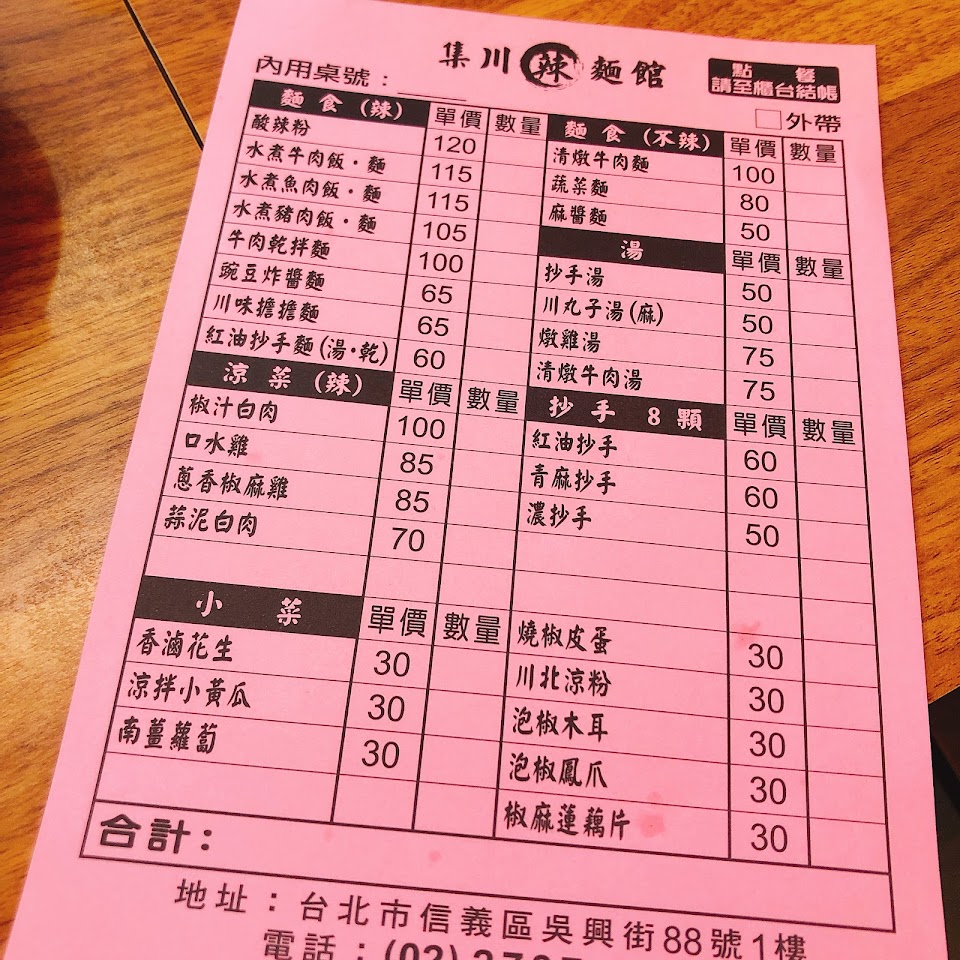 集川辣麵館
點餐
請至櫃台結帳
內用桌號：
外帶
麵食(辣) 單價 數量
酸辣粉 120
水煮牛肉飯·麵 115
水煮魚肉飯·麵 115
水煮豬肉飯·麵 105
牛肉乾拌麵 100
豌豆炸醬麵 65
川味擔擔麵 65
紅油抄手麵(湯·乾) 60
涼菜(辣) 單價 數量
椒汁白肉 100
口水雞 85
蔥香椒麻雞 85
蒜泥白肉 70
麵食(不辣) 單價 數量
清燉牛肉麵 100
蔬菜麵 80
麻醬麵 50
湯 單價 數量
抄手湯 50
川丸子湯(麻) 50
燉雞湯 75
清燉牛肉湯 75
抄手8顆 單價 數量
紅油抄手 60
青麻抄手 60
濃抄手 50
小菜 單價 數量
香滷花生 30
涼拌小黃瓜 30
南薑蘿蔔 30
燒椒皮蛋 30
川北涼粉 30
泡椒木耳 30
泡椒鳳爪 30
椒麻蓮藕片 30
合計：
地址：台北市信義區吳興街88號1樓
電話：(02)